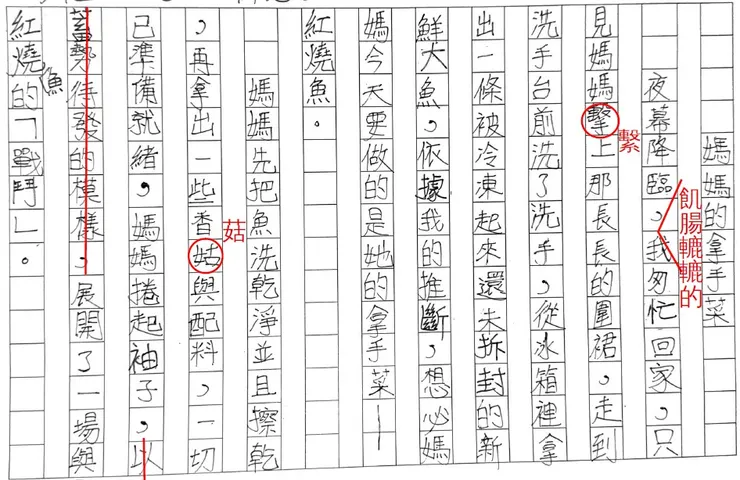 媽媽的拿手菜
夜幕降臨，我匆忙回家，只
飢腸轆轆的
見媽媽擊上那長長的圍裙，走到
繫
洗手台前洗了洗手，從冰箱裡拿
出一條被冷凍起來還未拆封的新
鮮大魚，依據我的推斷，想必媽
媽今天要做的是她的拿手菜—
紅燒魚。
媽媽先把魚洗乾淨並且擦乾
，再拿出一些香姑與配料，一切
菇
已準備就緒，媽媽捲起袖子，以
蓄勢待發的模樣，展開了一場與
紅燒魚的「戰鬥」。